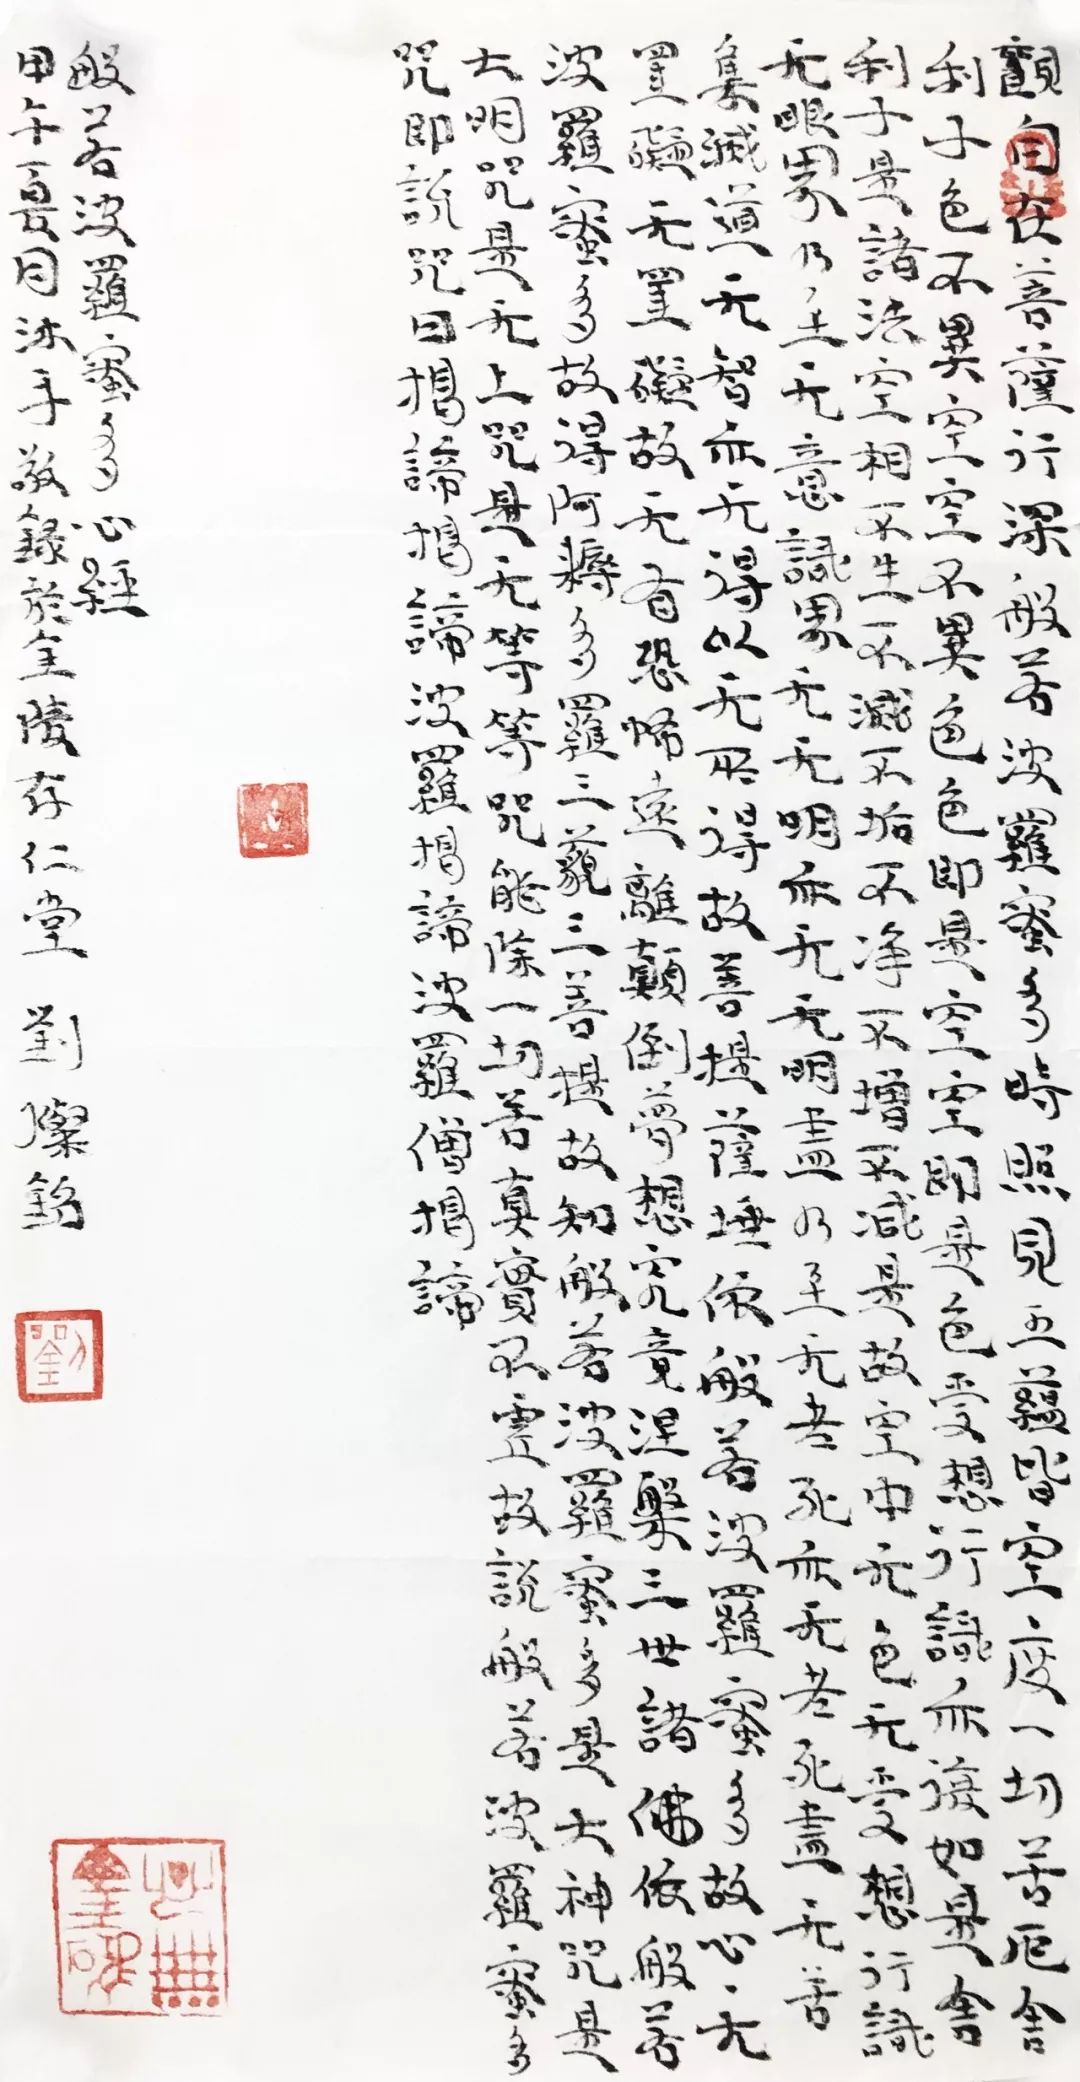 觀自在菩薩行深般若波羅蜜多時照見五蘊皆空度一切苦厄舍
利子色不異空空不異色色即是空空即是色受想行識亦復如是舍
利子是諸法空相不生不滅不垢不净不增不减是故空中无色无受想行識
无眼界乃至无意識界无无明亦无无明盡乃至无老死亦无老死盡无苦
集滅道无智亦无得以无所得故菩提薩埵依般若波羅蜜多故心无
罣礙无罣礙故无有恐怖遠離顛倒夢想究竟涅槃三世諸佛依般若
波羅蜜多故得阿耨多羅三藐三菩提故知般若波羅蜜多是大神咒是
大明咒是无上咒是无等等咒能除一切苦真實不虛故說般若波羅蜜多
咒即說咒曰揭諦揭諦波羅揭諦波羅僧揭諦
般若波羅蜜多心經
甲午夏月沐手敬錄於金陵存仁堂 劉燦銘
劉